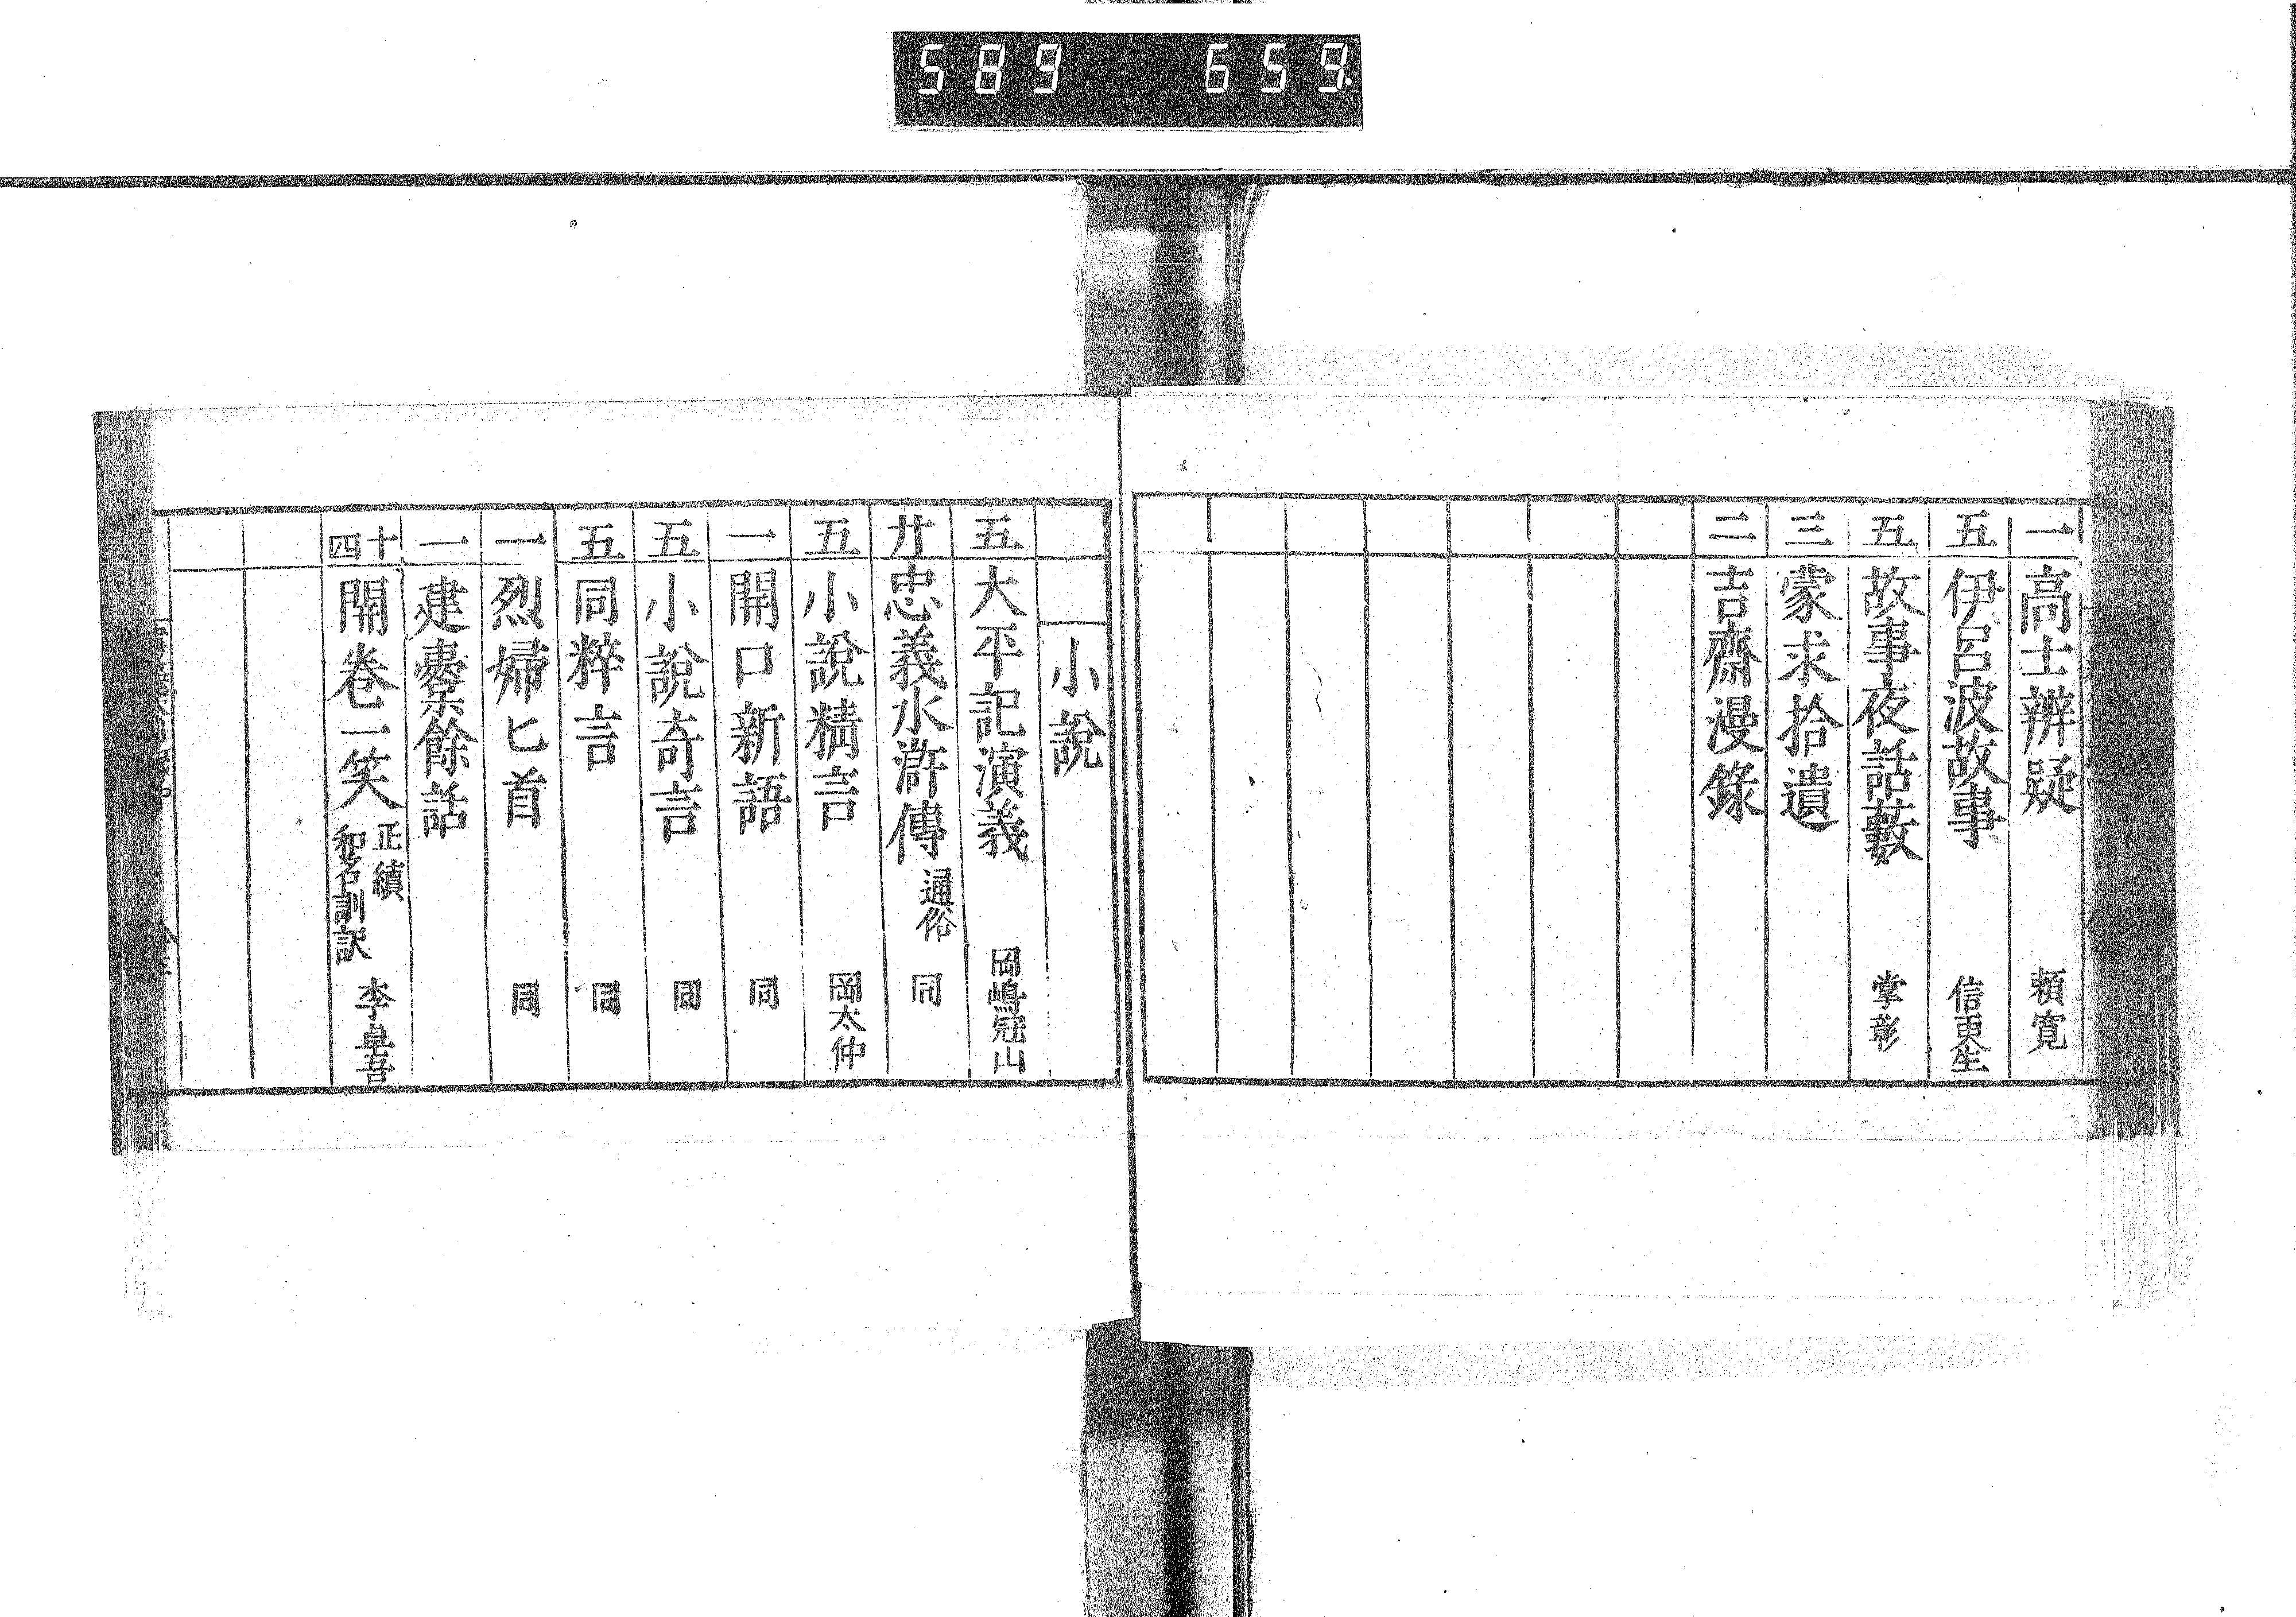 589 659
一 高士辨疑 頼寛
五 伊呂波故事 信更生
五 故事夜話藪 掌彰
三 蒙求拾遺
二 吉齋漫錄
小說
五 大平記演義 岡嶋冠山
廿 忠義水滸傳 通俗 同
五 小說精言 岡太仲
一 開口新語 同
五 小說奇言 同
五 同粹言 同
一 烈婦匕首 同
一 建櫜餘話
十四 開卷一笑 正續 和名訓訳 李卓吾